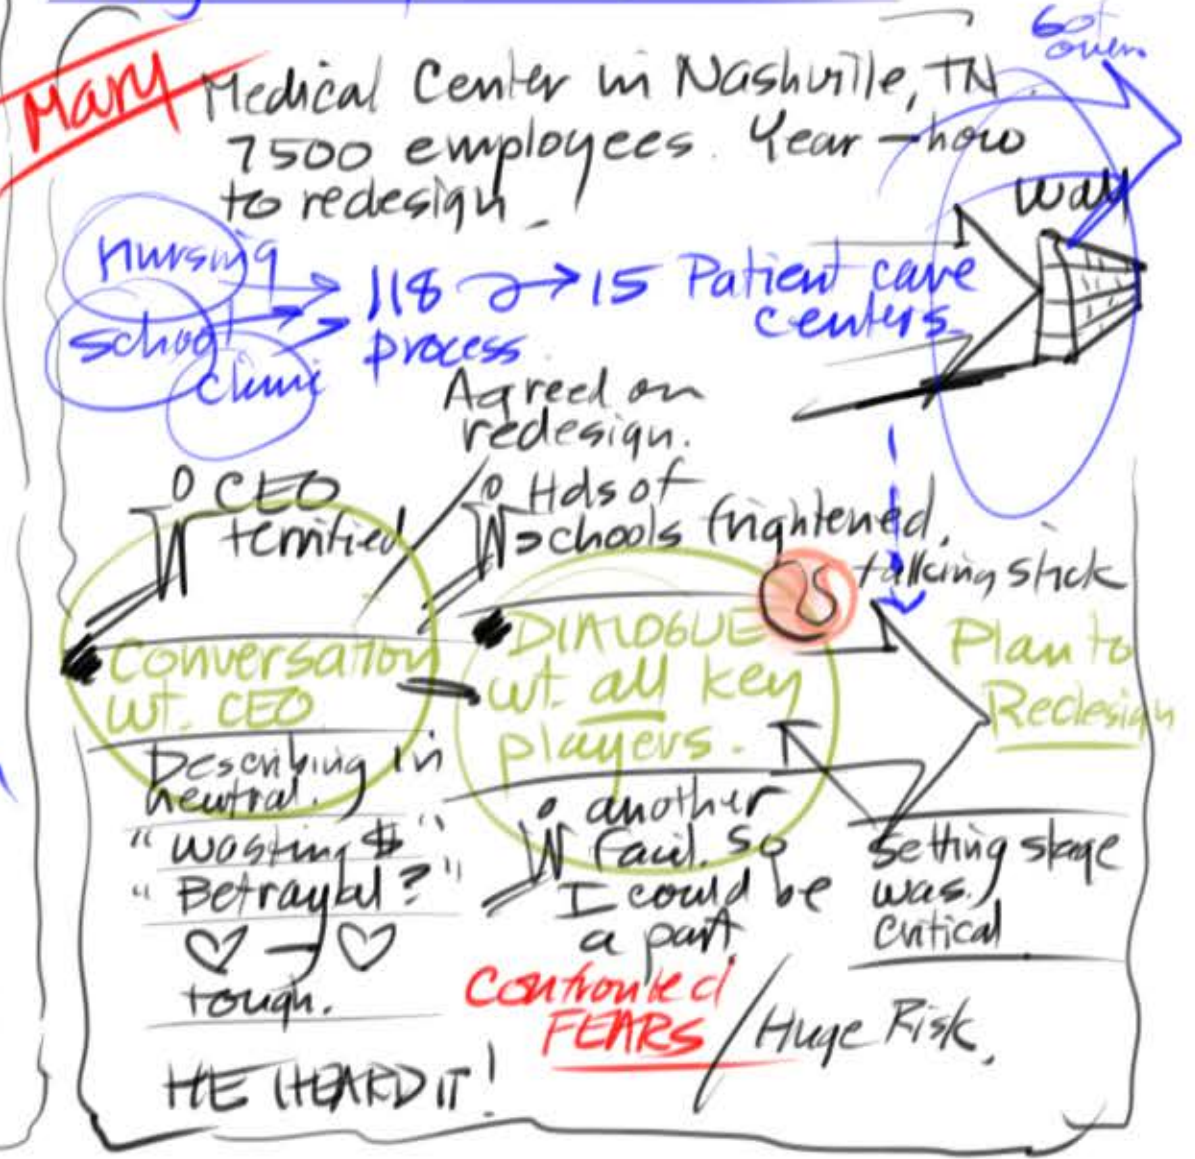 Mary
Medical Center in Nashville, TN.
7500 employees. Year - how
to redesign
Got
over
wall
nursing
school
clinic
118 → 15 Patient care
process
centers
Agreed on
redesign.
CEO
terrified
Hds of
schools frightened.
talking stick
Conversation
wt. CEO
DIALOGUE
wt. all key
players.
Plan to
Redesign
Describing in
neutral.
"Wasting $"
"Betrayal?"
♡ – ♡
tough.
HE HEARD IT!
another
Facil. So
I could be
a part
Setting stage
was
critical
Confronted
FEARS / Huge Risk.